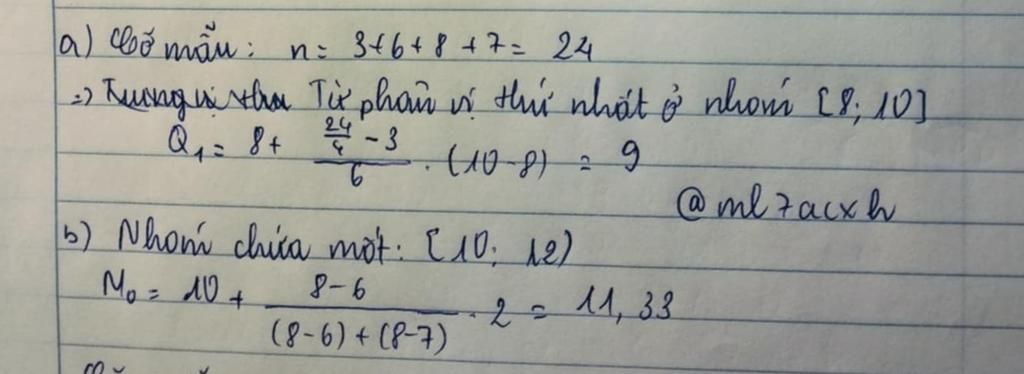 a) Cỡ mẫu: n = 3+6+8+7 = 24
=> Tứ phân vị thứ nhất ở nhóm [8; 10]
Q₁ = 8 + \frac{\frac{24}{4} - 3}{6} . (10-8) = 9
@ml7acxh
b) Nhóm chứa mốt: [10; 12)
M₀ = 10 + \frac{8-6}{(8-6)+(8-7)} . 2 = 11,33